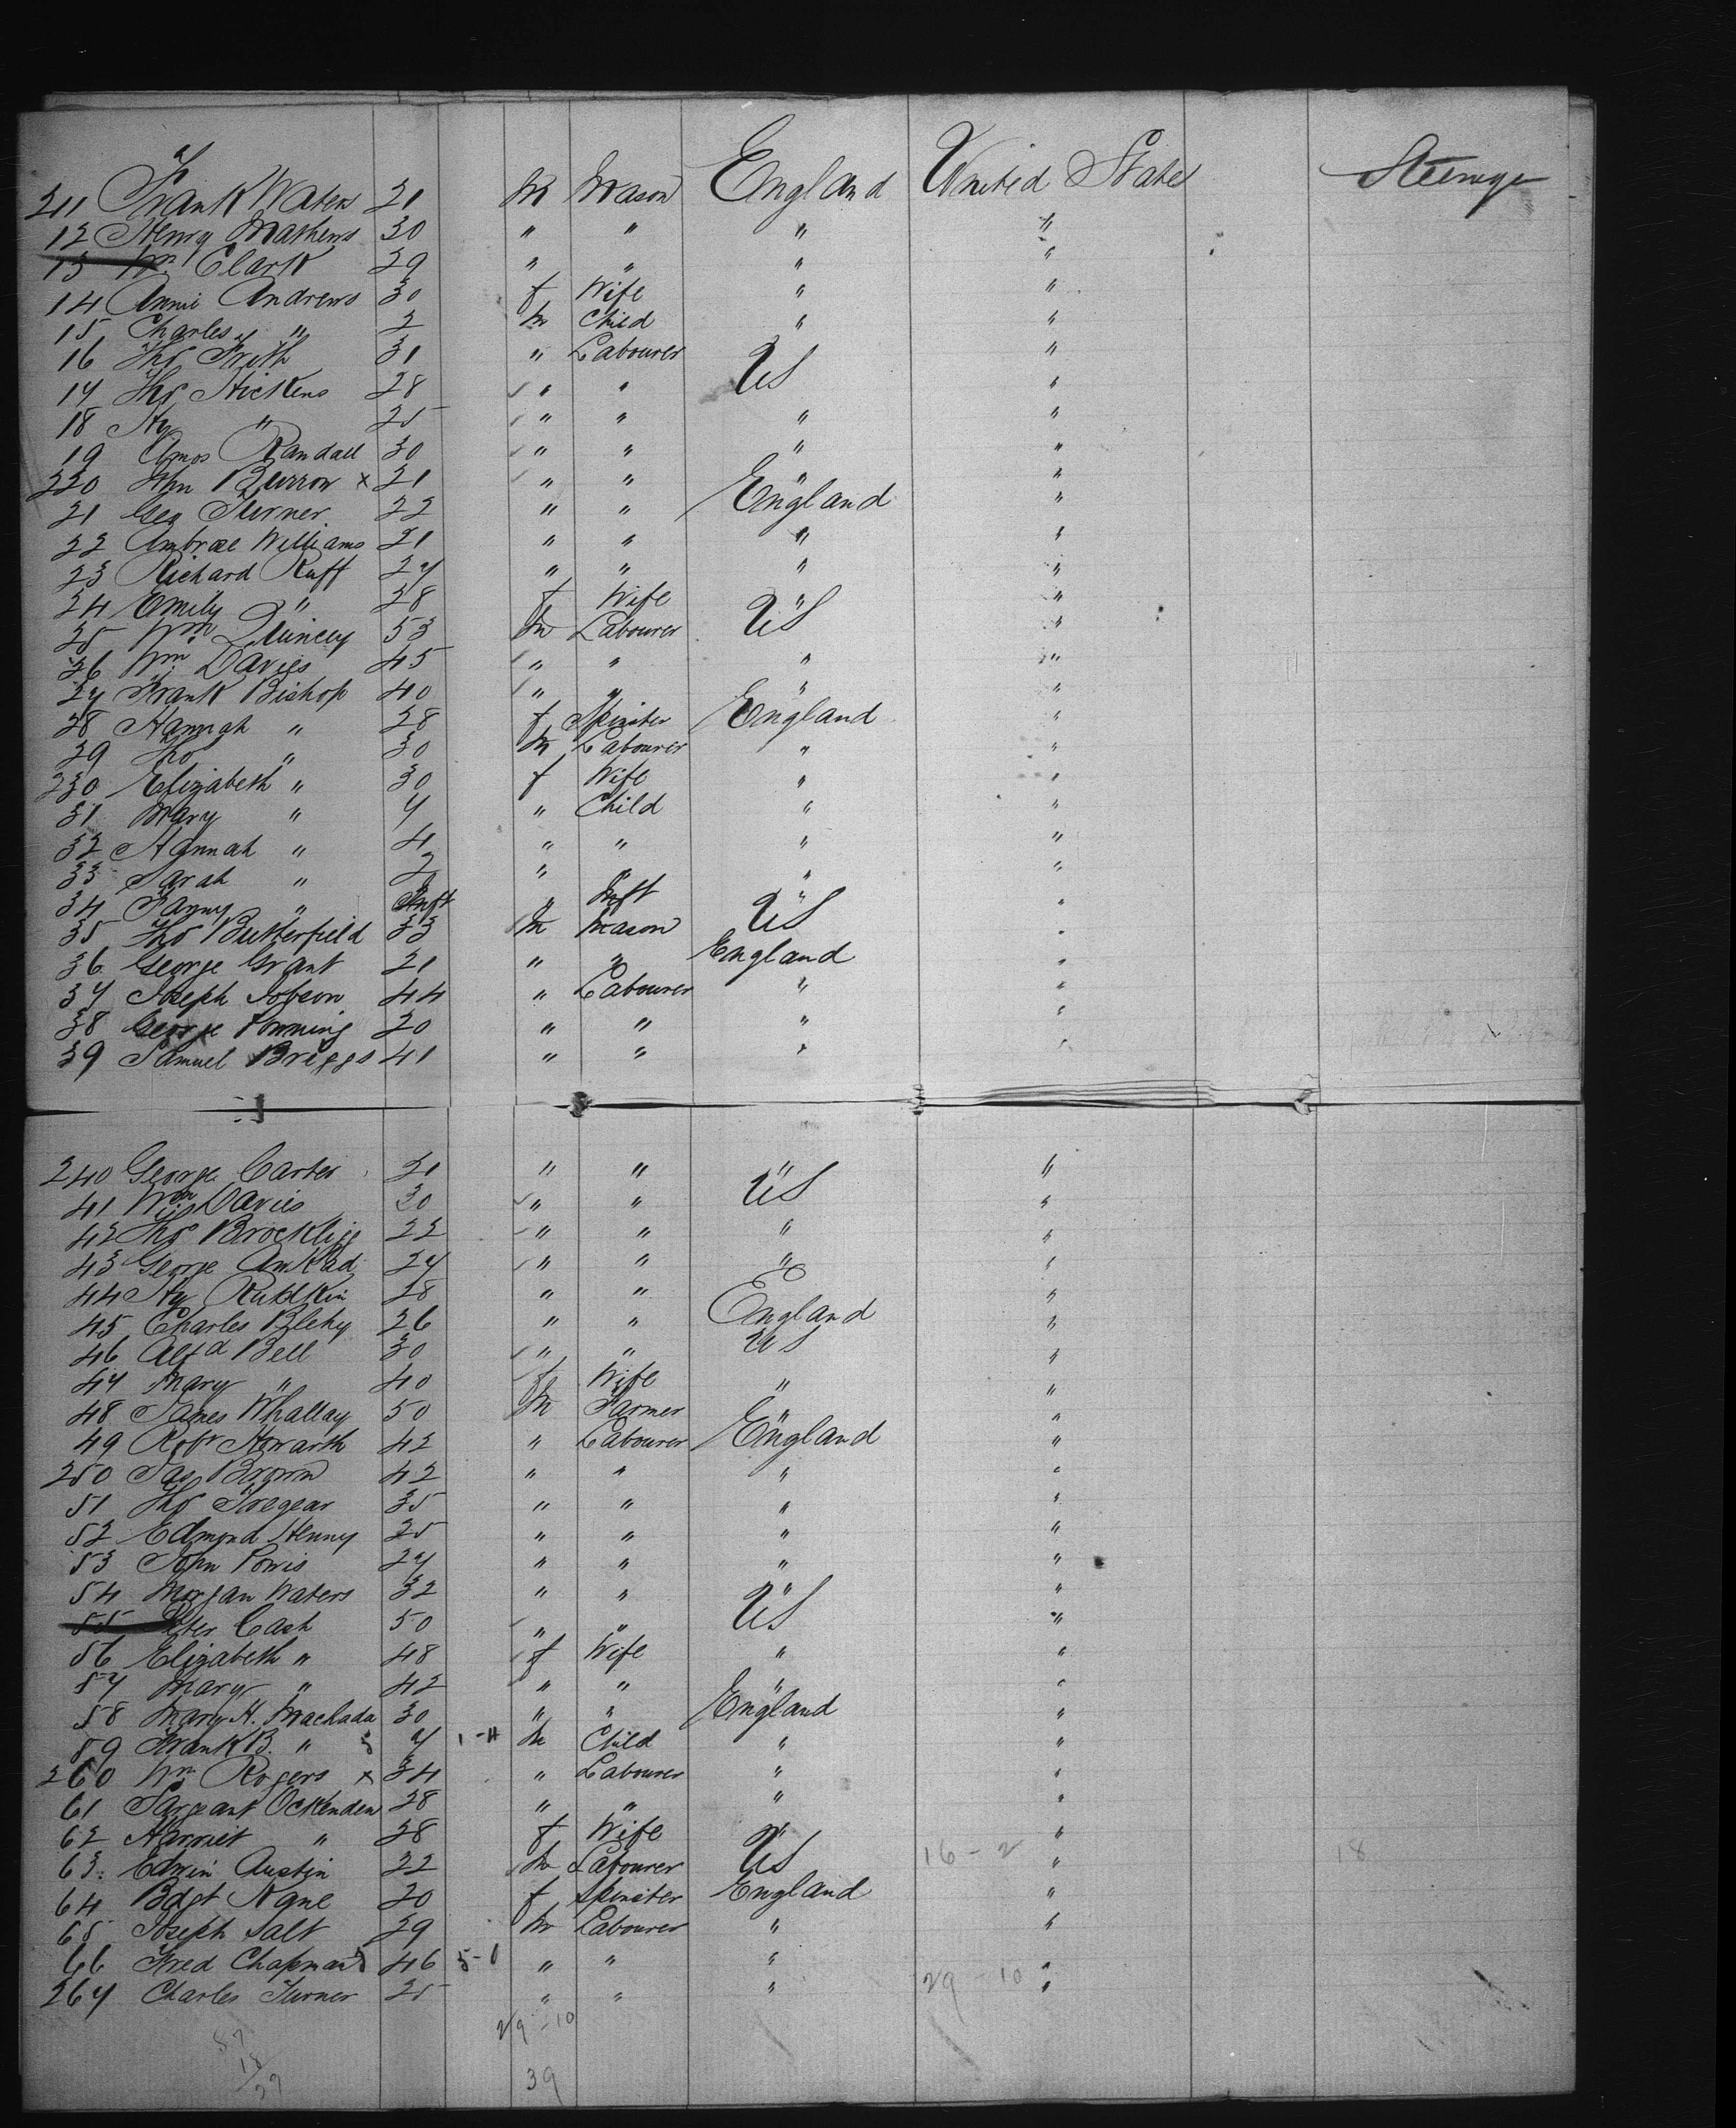 211 Frank Waters 21 M Mason England United State Steerage
12 Henry Mathews 30 " " " "
13 Wm Clark 29 " " " "
14 Annie Andrews 30 f Wife " "
15 Charles " 2 m Child " "
16 Thos Frith 31 " Labourer US "
17 Thos Hickens 28 " " "
18 Hy " 25 " " " "
19 Amos Randall 30 " " " "
220 John Burrow x 21 " " " "
21 Geo Turner 22 " " England "
22 Ambrose Williams 21 " " " "
23 Richard Ruff 27 " " " "
24 Emily " 28 f Wife " "
25 Wm Quincey 53 m Labourer US "
26 Wm Davies 45 " " " "
27 Frank Bishop 40 " " " "
28 Hannah " 28 f Spinster England "
29 Tho " 30 m Labourer " "
230 Elizabeth " 30 f Wife " "
31 Mary " 7 " Child " "
32 Hannah " 4 " " " "
33 Sarah " 2 " " " "
34 Fanny " Inft " Inft " "
35 Thos Butterfield 33 m Mason US "
36 George Grant 21 " " England "
37 Joseph Jobson 44 " Labourer " "
38 George Powning 20 " " " "
39 Samuel Briggs 41 " " " "
240 George Carter 21 " " " "
41 Wm Davies 30 " " US "
42 Thos Brocklip 22 " " " "
43 George 27 " " " "
44 Hy Rudkin 28 " " "
45 Charles 26 " " England "
46 Alfd Bell 30 " " US "
47 Mary " 40 f Wife " "
48 James Whallay 50 m Farmer " "
49 Robt Howarth 42 " Labourer England "
250 Jas Brown 42 " " " "
51 Thos Tregear 35 " " " "
52 Edmond Henny 25 " " " "
53 John Powis 27 " " " "
54 Morgan Waters 32 " " " "
55 Peter Cash 50 " " US "
56 Elizabeth " 48 f Wife " "
57 Mary " 42 " " " "
58 Mary H. Machada 30 " " England "
59 Frank B. " 7 1-11 m Child " "
260 Wm Rogers x 34 " Labourer " "
61 Sargeant Ockenden 28 " " " "
62 Harriet " 28 f Wife " "
63 Edwin Austin 22 m Labourer US 16-2 " 18
64 Bdgt 20 f Spinster England "
65 Joseph Salt 29 m Labourer " "
66 Fred Chapman 46 5-1 " " " "
267 Charles Turner 25 " " " 29-10 "
29-10
39